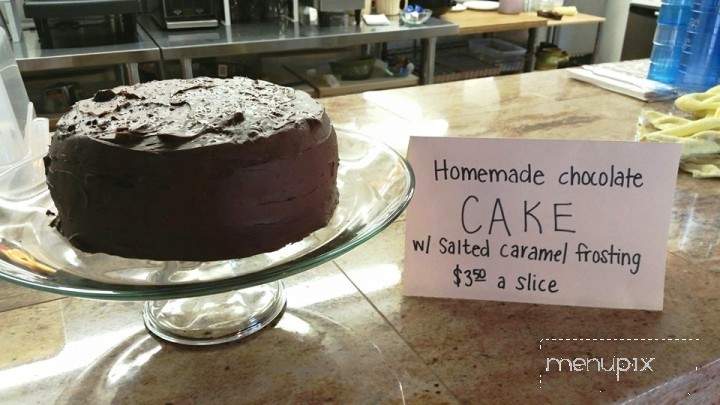 Homemade chocolate
CAKE
w/ Salted Caramel frosting
$3.50 a slice
menupix